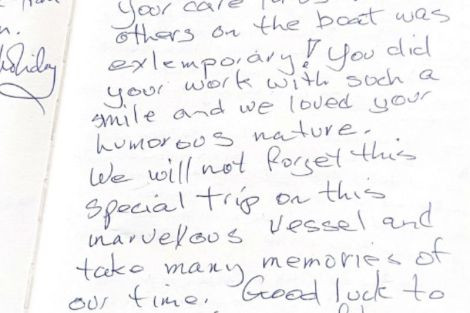 n.
Your care
others on the boat was
exlemporary! You did
your work with such a
smile and we loved your
humorous nature.
We will not forget this
special trip on this
marvellous vessel and
take many memories of
our time. Good luck to